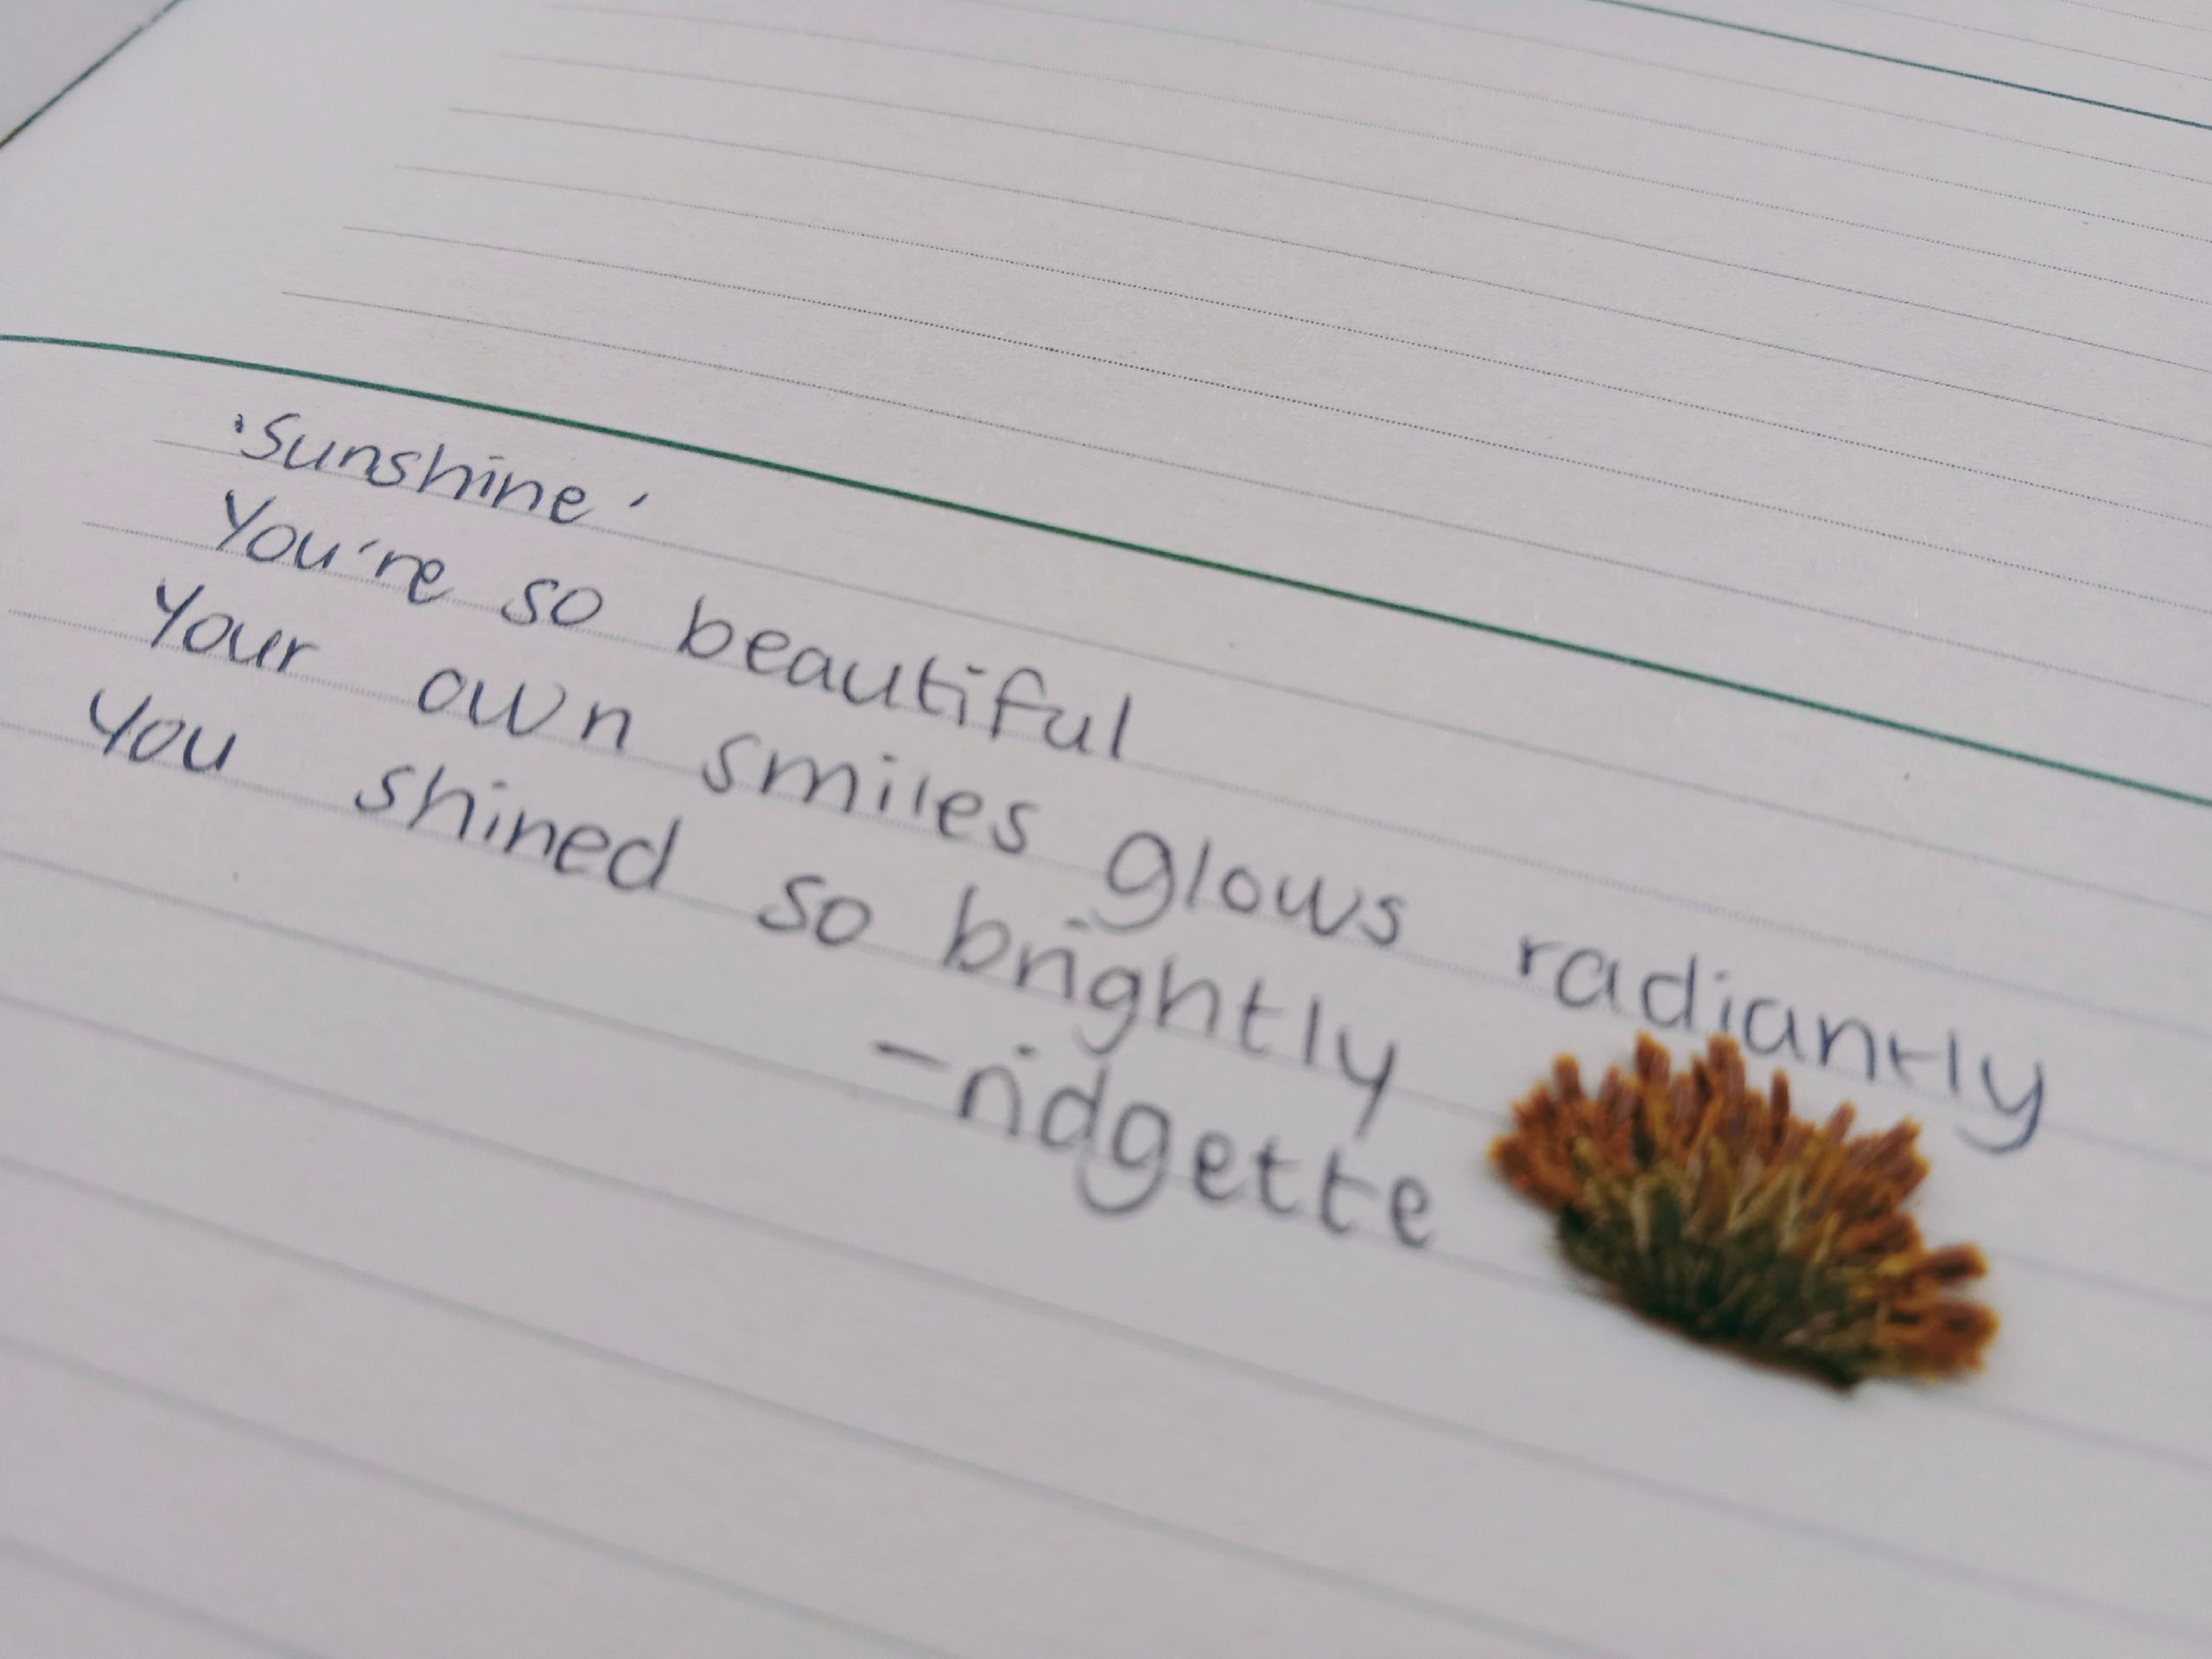 'Sunshine'
You're so beautiful
Your own smiles glows radiantly
You shined so brightly
-ridgette